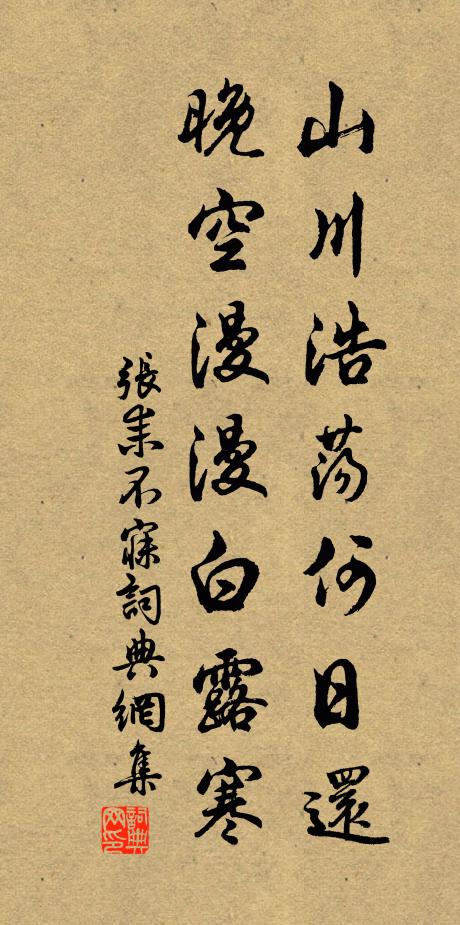 山川浩荡何日還
晚空漫漫白露寒
張耒不寐詞典網集
詞典网印